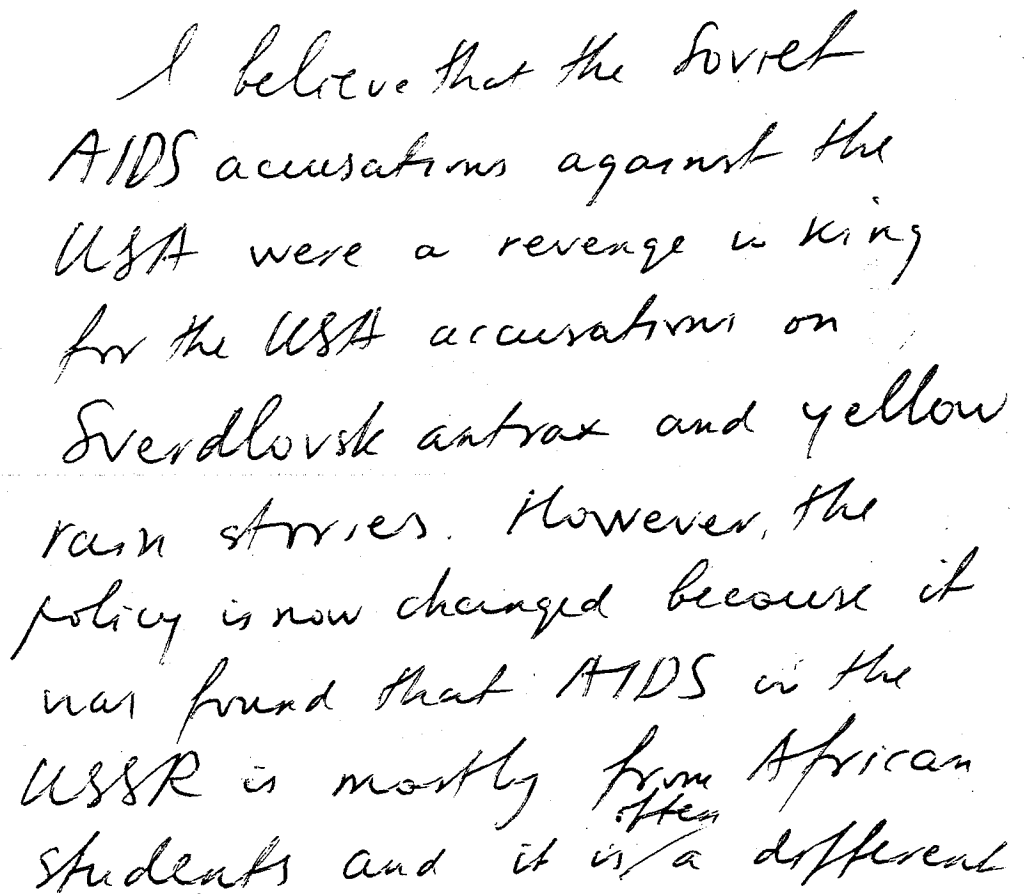 I believe that the Soviet
AIDS accusations against the
USA were a revenge in king
for the USA accusations on
Sverdlovsk antrax and yellow
rain stories. However, the
policy is now changed because it
was found that AIDS in the
USSR is mostly from African
often
students and it is / a different